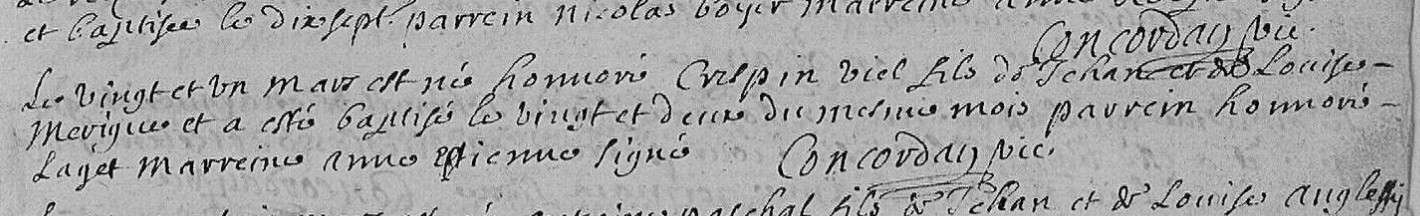 et baptisee le dix sept. parrein nicolas boyer marreine anne
Concordan vic.
Le vingt et vn mars est né honnoré Crespin viel fils de Jehan et de Louise
Merigue et a esté baptisé le vingt et deux du mesme mois parrein honnoré
Laget marreine anne estienne signé Concordan vic.
paschal fils de Jehan et de Louise